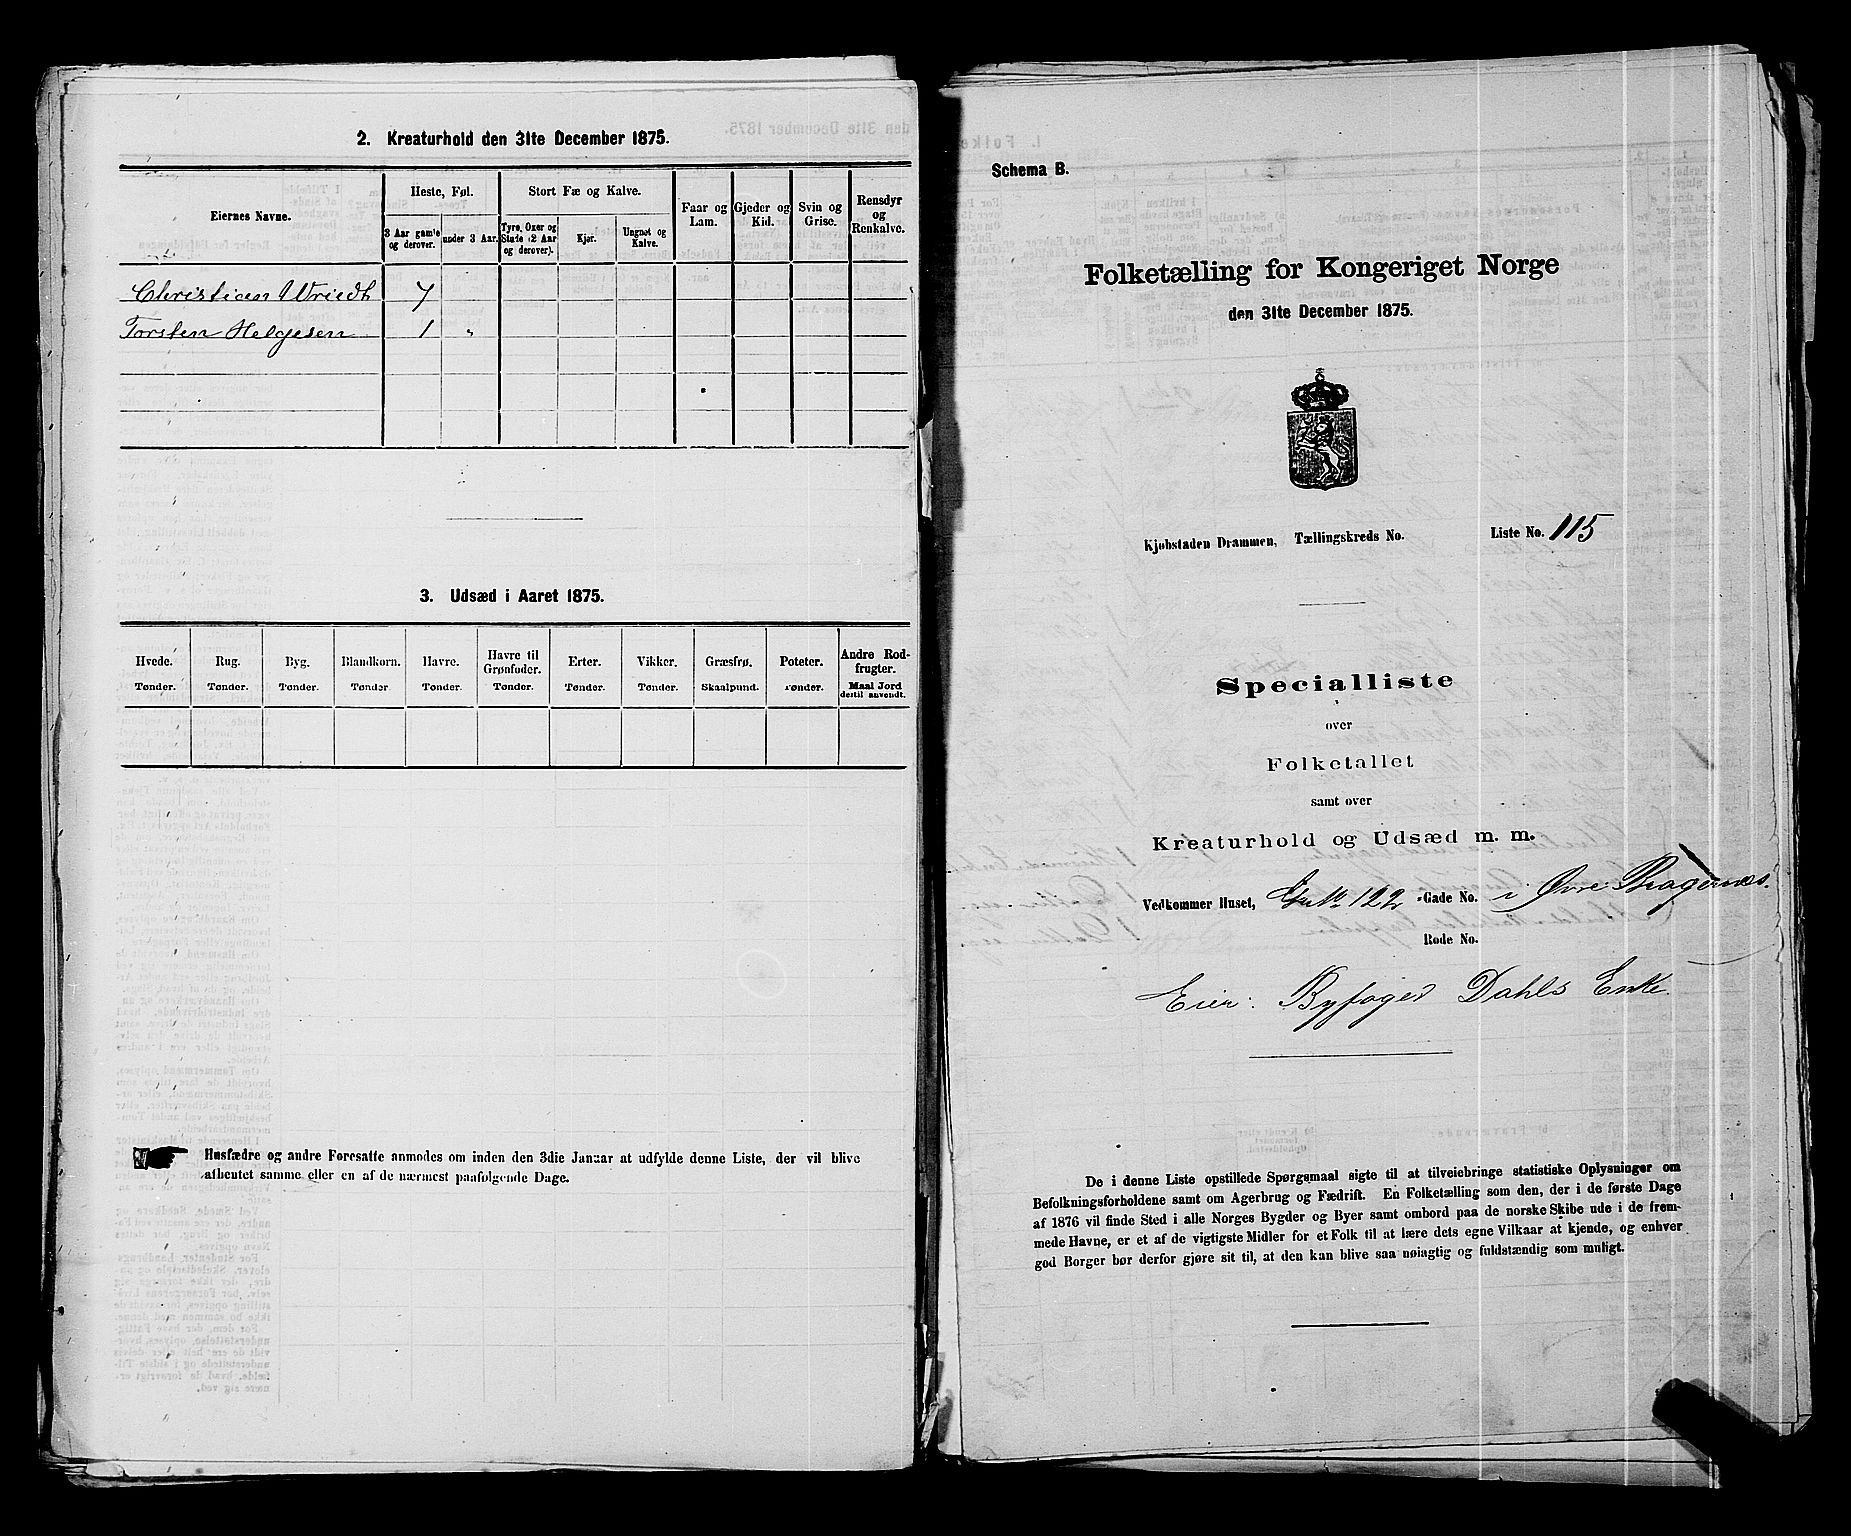 2. Kreaturhold den 31te December 1875.
Eiernes Navne.
Heste, Føl.
3 Aar gamle og derover.
under 3 Aar.
Stort Fæ og Kalve.
Tyre, Oxer og Stude (2 Aar og derover).
Kjør.
Ungnøt og Kalve.
Faar og Lam.
Gjeder og Kid.
Svin og Grise.
Rensdyr og Renkalve.
Christian Wriedt 7
Torsten Helgesen 1 "
3. Udsæd i Aaret 1875.
Hvede. Rug. Byg. Blandkorn. Havre. Havre til Grønfoder. Erter. Vikker. Græsfrø. Poteter. Andre Rodfrugter.
Tønder. Tønder. Tønder. Tønder Tønder. Tønder. Tønder. Tønder. Skaalpund. Tønder. Maal Jord dertil anvendt.
Husfædre og andre Foresatte anmodes om inden den 3die Januar at udfylde denne Liste, der vil blive
afhentet samme eller en af de nærmest paafølgende Dage.
Schema B.
Folketælling for Kongeriget Norge
den 31te December 1875.
Kjøbstaden Drammen, Tællingskreds No. Liste No. 115
Specialliste
over
Folketallet
samt over
Kreaturhold og Udsæd m. m.
Vedkommer Huset, 122 -Gade No. i Øvre Bragernæs.
Rode No.
Eier: Byfoged Dahls Enke
De i denne Liste opstillede Spørgsmaal sigte til at tilveiebringe statistiske Oplysninger om
Befolkningsforholdene samt om Agerbrug og Fædrift. En Folketælling som den, der i de første Dage
af 1876 vil finde Sted i alle Norges Bygder og Byer samt ombord paa de norske Skibe ude i de frem-
mede Havne, er et af de vigtigste Midler for et Folk til at lære dets egne Vilkaar at kjende, og enhver
god Borger bør derfor gjøre sit til, at den kan blive saa nøiagtig og fuldstændig som muligt.